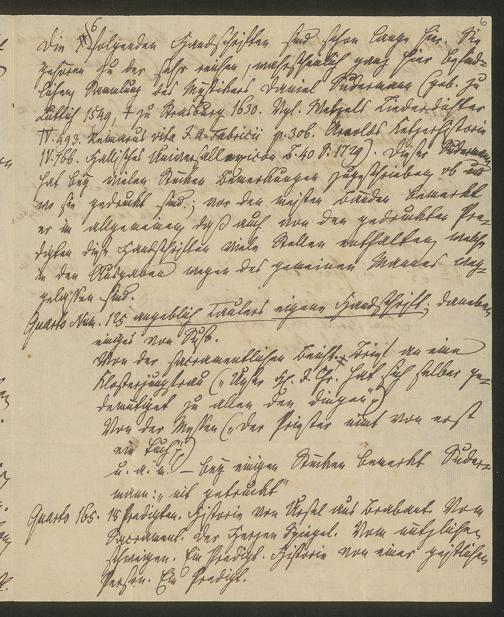 6
Die 6 folgenden Handschriften sind schon lange hier. Sie
gehören zu der sehr reichen, wahrscheinlich ganz hier befind-
lichen Sammlung des Mystikers Daniel Sudermann (geb. zu
Lüttich 1549, † zu Strasburg 1630. Vgl. Wetzels Liederdichter
IV. 293. Reimarus vita J. A. Fabricii p. 306. Arnolds Ketzerhistorie
IV. 766. Hallisches Universallexicon B. 40 S. 1729). Dieser Sudermann
hat bey vielen Stücken Bemerkungen zugeschrieben, ob und
wo sie gedruckt sind; vor den meisten Bänden bemerkt
er im allgemeinen, daß auch von den gedruckten Pre-
digten diese Handschriften viele Stellen enthalten, welche
in den Ausgaben wegen des gemeinen Mannes weg-
gelassen sind.
Quarto Num. 125 angeblich Taulers eigene Handschrift; daneben
einiges von Suso.
Von der sacramentlichen Beicht. Brief an eine
Klosterjungfrau („Unser H. J. Chr. hat sich selber ge-
demütiget zu allen den dingen“)
Von der Messen („Der Priester nimt von erst
ein tuch“)
u. a. m. — bey einigen Stücken bemerkt Suder-
mann: „nit getruckt“
Quarto 165. 18 Predigten. Historie von Ursel aus Brabant. Vom
Sacrament. Der Herzen Spiegel. Vom nützlichen
schweigen. Ein Predigt. Historie von einer geistlichen
Person. Ein Predigt.